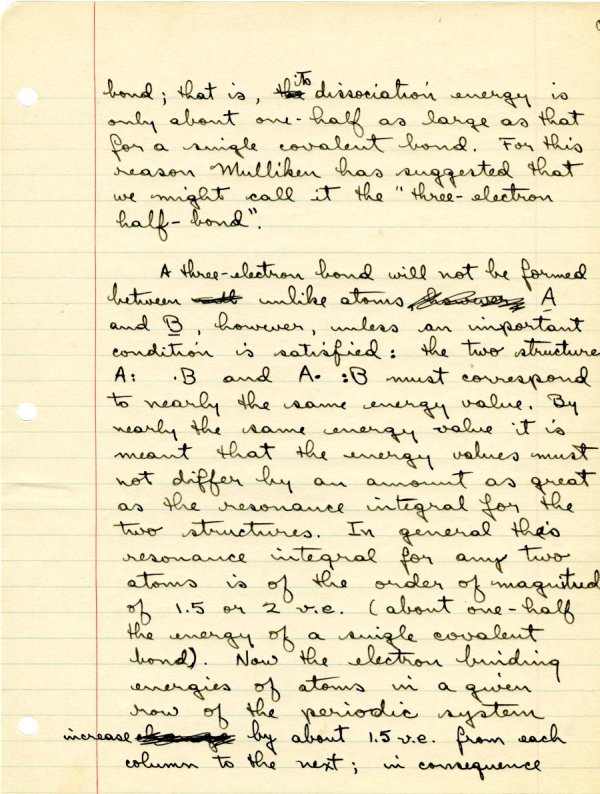 bond; that is, its dissociation energy is
only about one-half as large as that
for a single covalent bond. For this
reason Mulliken has suggested that
we might call it the "three-electron
half-bond".
A three-electron bond will not be formed
between unlike atoms A
and B, however, unless an important
condition is satisfied: the two structure
A: ·B and A· :B must correspond
to nearly the same energy value. By
nearly the same energy value it is
meant that the energy values must
not differ by an amount as great
as the resonance integral for the
two structures. In general this
resonance integral for any two
atoms is of the order of magnitud
of 1.5 or 2 v.e. (about one-half
the energy of a single covalent
bond). Now the electron binding
energies of atoms in a given
row of the periodic system
increase by about 1.5 v.e. from each
column to the next; in consequence